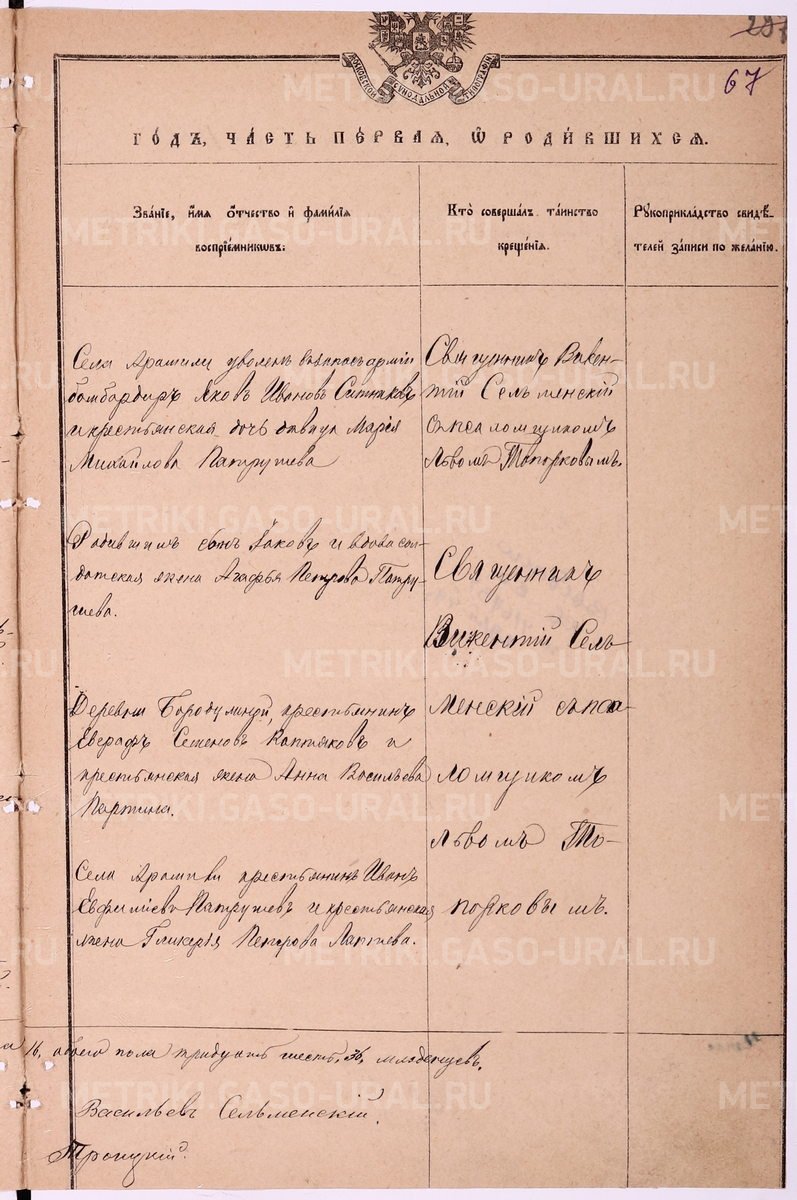 297
67
МОСКОВСКОЙ СѴНОДАЛЬНОЙ ТИПОГРАФІИ
ГОДЪ, ЧАСТЬ ПЕРВАЯ, Ѡ РОДИВШИХСЯ.
Званіе, имя отчество и фамилія
воспріемниковъ:
Кто совершалъ таинство
крещенія.
Рукоприкладство свидѣ-
телей записи по желанію.
Села Арамили уволен въ запасъ арміи
бомбардиръ Яковъ Ивановъ Ситниковъ
и крестьянская дочь девица Марія
Михайлова Патрушева
Священникъ Викен-
тій Сельменскій
съ псаломщикомъ
Львомъ Топорковымъ.
сынъ Іаковъ и вдова сол-
датская жена Агафья Петрова Патру-
шева.
Священникъ
Викентій Сель-
менскій съ пса-
ломщикомъ
Львомъ То-
порковымъ.
Деревни Бородулиной, крестьянинъ
Евграфъ Семеновъ Каптяковъ и
крестьянская жена Анна Васильева
Партина.
Села Арамили крестьянинъ Иванъ
Евфиміевъ Патрушевъ и крестьянская
жена Гликерія Петрова Лаптева.
16, обоего пола тридцать шесть, 36, младенцевъ.
Васильевъ Сельменскій.
Троицкій.
METRIKI.GASO-URAL.RU